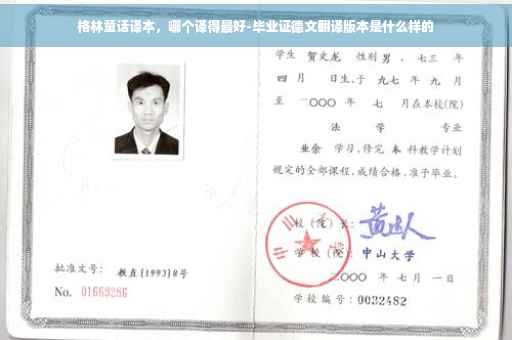 格林童话译本，哪个译得最好-毕业证德文翻译版本是什么样的
学生 贺文龙 性别 男 、七三 年
四 月 日生,于 九七 年 九 月
至 二〇〇〇 年 七 月在本校(院)
法 学 专业
业余 学习,修完 本 科教学计划
规定的全部课程,成绩合格,准予毕业。
校(院)长:
学 校(院): 中山大学
二〇〇〇 年 七 月 一 日
批准文号: 教直(1993)8号
No. 01669286
学校编号: 0032482